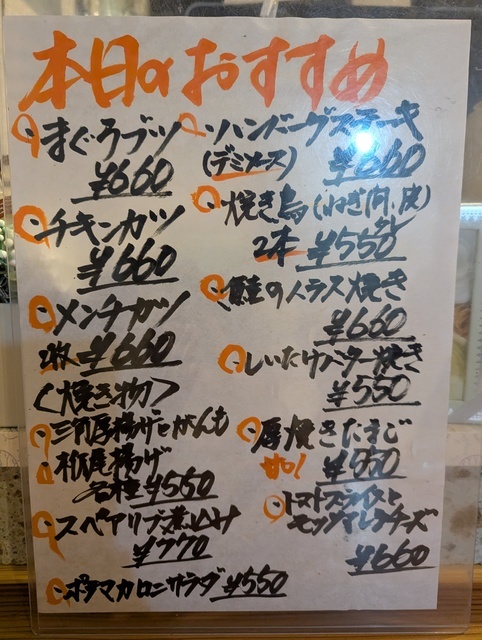 本日のおすすめ
まぐろブツ
¥660
チキンカツ
¥660
メンチカツ
2枚 ¥660
〈焼き物〉
三角厚揚げとがんも
栃尾揚げ
各種 ¥550
スペアリブ煮込み
¥770
ポテマカロニサラダ ¥550
ハンバーグステーキ
(デミソース) ¥660
焼き鳥(ねぎ肉、皮)
2本 ¥550
鮭のハラス焼き
¥660
しいたけバター焼き
¥550
厚焼きたまご
甘口
トマトスライスと
モッツァレラチーズ
¥660